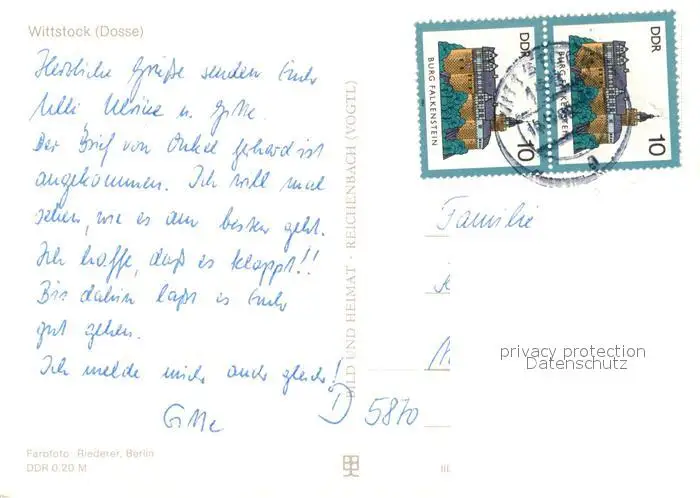 Wittstock (Dosse)
Herzliche Grüße senden Euch
Ulli, Ulrike u. Gitte.
Der Brief von Onkel Gerhard ist
angekommen. Ich will mal
sehen, wie es am besten geht.
Ich hoffe, daß es klappt!!
Bis dahin laßt es Euch
gut gehen.
Ich melde mich auch gleich!
Gitte
Farbfoto: Riederer, Berlin
DDR 0.20 M
BILD UND HEIMAT · REICHENBACH (VOGTL)
DDR
BURG FALKENSTEIN
10
DDR
BURG FALKENSTEIN
10
Familie
D 5870
privacy protection
Datenschutz